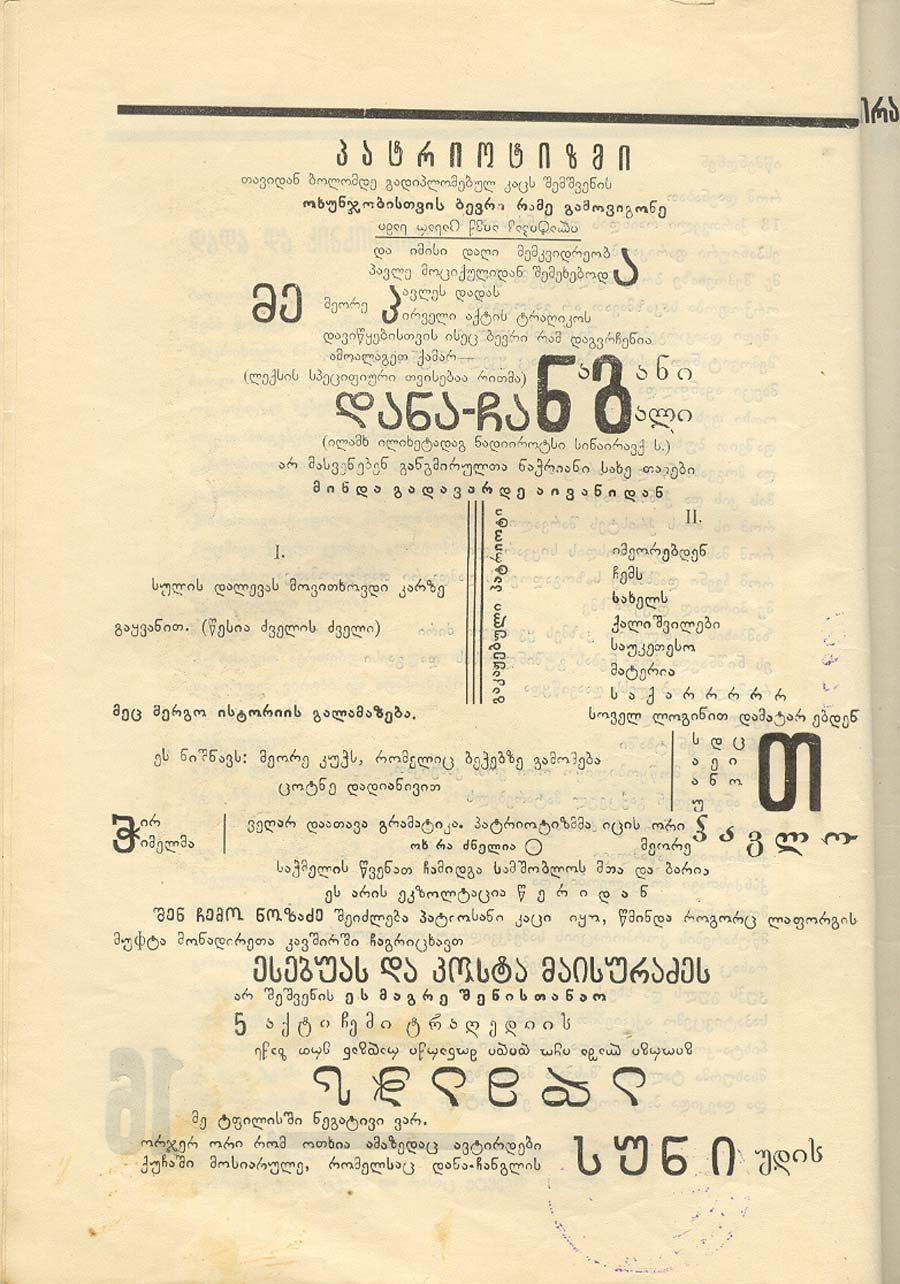 ირა
პატრიოტიზმი
თავიდან ბოლომდე გადიპლომებულ კაცს შემშვენის
ოხუნჯობისთვის ბევრი რამე გამოვიგონე
და იმისი დაღი მემკვიდრეობ
პავლე მოციქულიდან შემეხებოდ ა
მე მეორე პ ავლეს დადას
ირველი აქტის ტრაღიკოს
დავიწყებისთვის ისეც ბევრი რამ დაგვრჩენია
ამოალაგეთ ქამარ—
(ლექსის სპეციფიური თვისებაა რითმა) ნ ა გ ანი
დანა-ჩა ნ გ ალი
(ილამხ ილიხეტადაგ ნადიიროტსი სინაირავქ ს.)
არ მასვენებენ განგმირულთა ნაჭრიანი სახე თალები
მინდა გადავარდე აივანიდან
I.
სულის დალევას მოვითხოვდი კარზე
გაყვანით. (წესია ძველის ძველი)
გაკაჟებული პატრიოტი
II.
იმეორებდენ
ჩემს
სახელს
ქალიშვილები
საუკეთესო
მატერია
საქარრრრრ
მეც მერგო ისტორიის გალამაზება.
სოველ ლოგინით დამატარ ებდენ
ეს ნიშნავს: მეორე კუჭს, რომელიც ბეჭებზე გამომება
ცოტნე დადიანივით
ს დ ც
ა ე ი
ა ნ ო
უ
თ
შ ირ
იმელმა
ვეღარ დაათავა გრამატიკა. პატრიოტიზმმა იცის ორი
ოხ რა ძნელია
მეორე პავლო
საჭმელის წვენათ ჩამიდგა სამშობლოს მთა და ბარია
ეს არის ეკზოლტაცია წერიდან
შენ ჩემო ნოზაძე შეიძლება პატიოსანი კაცი იყო, წმინდა როგორც ლაფორგის
მუფტა მონადირეთა კავშირში ჩაგრიცხავთ
ესებუას და კოსტა მაისურაძეს
არ შეშვენის ეს მაგრე შენისთანაო
5 აქტი ჩემი ტრაღედიის
მე ტფილისში ნეგატივი ვარ.
ორჯერ ორი რომ ოთხია ამაზედაც ავტირდები
ქუჩაში მოსიარულე, რომელსაც დანა-ჩანგლის
სუნი უდის